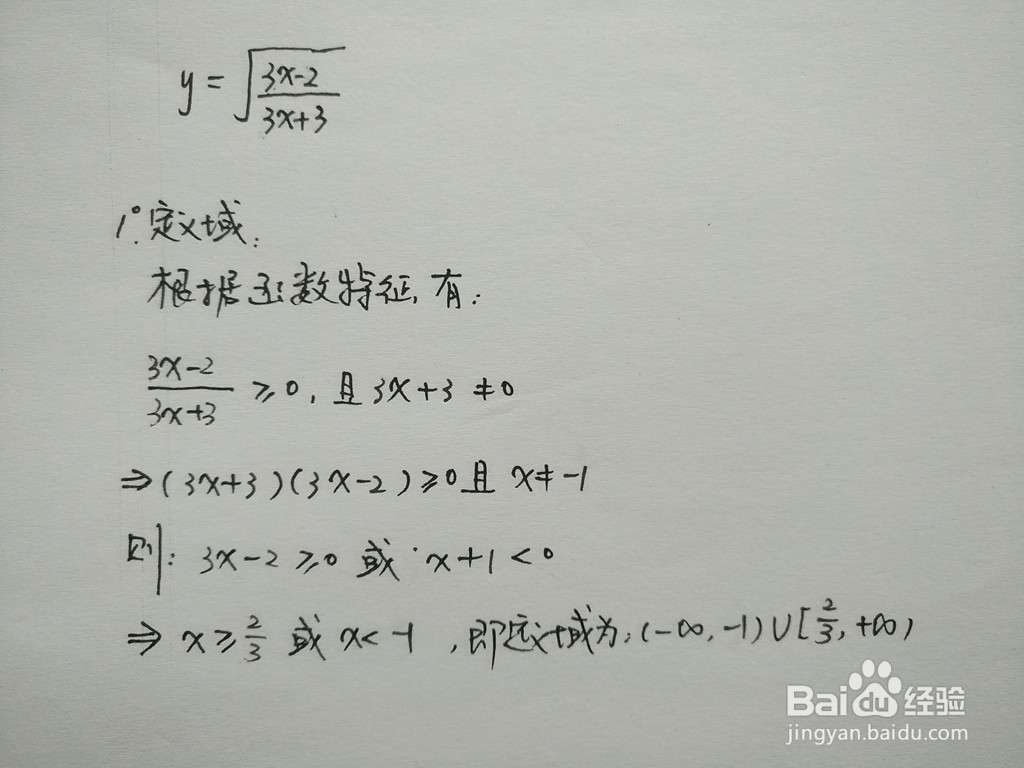 y = √((3x-2)/(3x+3))
1°. 定义域:
根据函数特征, 有:
(3x-2)/(3x+3) ≥ 0, 且 3x+3 ≠ 0
⇒ (3x+3)(3x-2) ≥ 0 且 x ≠ -1
则: 3x-2 ≥ 0 或 x+1 < 0
⇒ x ≥ 2/3 或 x < -1, 即定义域为: (-∞, -1)∪[2/3, +∞)
Baidu经验
jingyan.baidu.com